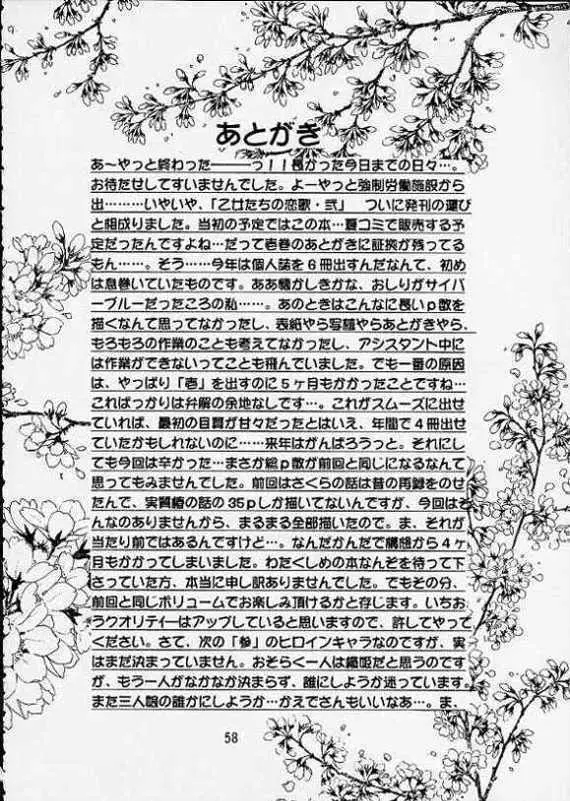 あとがき
あ～やっと終わった―――っ！！長かった今日までの日々…。
お待たせしてすいませんでした。よーやっと強制労働施設から
出………いやいや、「乙女たちの恋歌・弐」 ついに発刊の運び
と相成りました。当初の予定ではこの本…夏コミで販売する予
定だったんですよね…だって壱巻のあとがきに証拠が残ってる
もん……。そう……今年は個人誌を６冊出すんだなんて、初め
は息巻いていたものです。ああ懐かしきかな、おしりがサイバ
ーブルーだったころの私……。あのときはこんなに長いｐ数を
描くなんて思ってなかったし、表紙やら写植やらあとがきやら、
もろもろの作業のことも考えてなかったし、アシスタント中に
は作業ができないってことも飛んでいました。でも一番の原因
は、やっぱり「壱」を出すのに５ヶ月もかかったことですね…
こればっかりは弁解の余地なしです…。これがスムーズに出せ
ていれば、最初の目算が甘々だったとはいえ、年間で４冊出せ
ていたかもしれないのに……来年はがんばろうっと。それにし
ても今回は辛かった…まさか総ｐ数が前回と同じになるなんて
思ってもみませんでした。前回はさくらの話は昔の再録をのせ
たんで、実質椿の話の３５ｐしか描いてないんですが、今回はそ
んなのありませんから、まるまる全部描いたので。ま、それが
当たり前ではあるんですけど…。なんだかんだで構想から４ヶ
月もかかってしまいました。わたくしめの本なんぞを待って下
さっていた方、本当に申し訳ありませんでした。でもその分、
前回と同じボリュームでお楽しみ頂けるかと存じます。いちお
うクオリティーはアップしていると思いますので、許してやって
ください。さて、次の「参」のヒロインキャラなのですが、実
はまだ決まっていません。おそらく一人は織姫だと思うのです
が、もう一人がなかなか決まらず、誰にしようか迷っています。
また三人娘の誰かにしようか…かえでさんもいいなあ…。ま、
58